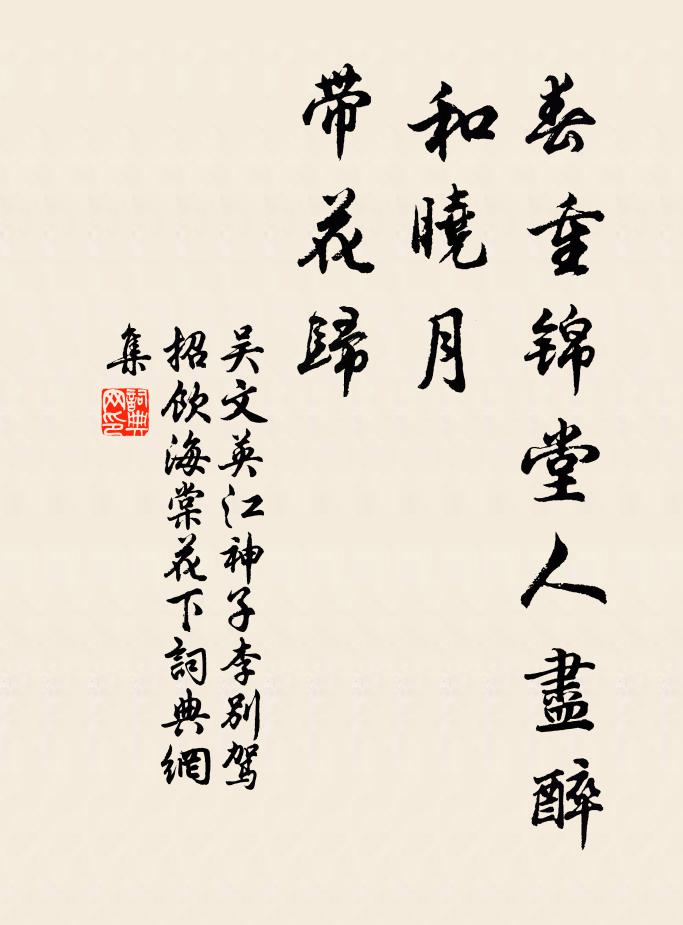 春重錦堂人盡醉
和曉月
帶花歸
吴文英江神子李別駕
招飲海棠花下詞典網
集
詞典
网印